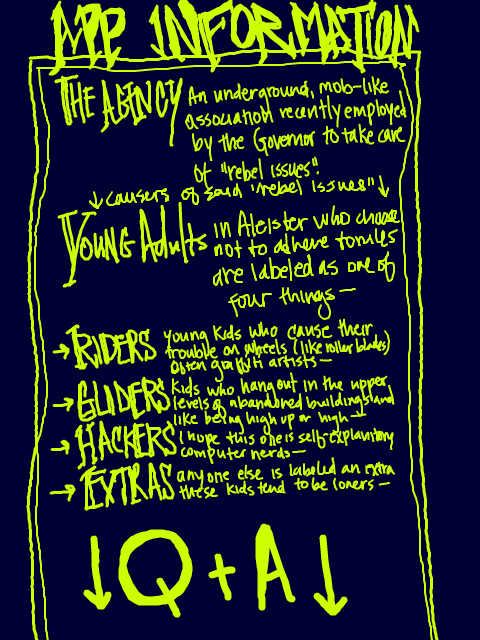 APP INFORMATION
THE AGENCY An underground, mob-like
association recently employed
by the Governor to take care
of "rebel issues".
↓ causers of said "rebel issues" ↓
Young Adults in Aleister who choose
not to adhere to rules
are labeled as one of
four things—
→ RIDERS young kids who cause their
trouble on wheels (like roller blades)
often graffiti artists—
→ GLIDERS kids who hang out in the upper
levels of abandoned buildings and
like being high up or high—
→ HACKERS I hope this one is self-explanitory
computer nerds—
→ EXTRAS anyone else is labeled an extra
these kids tend to be loners—
↓ Q + A ↓